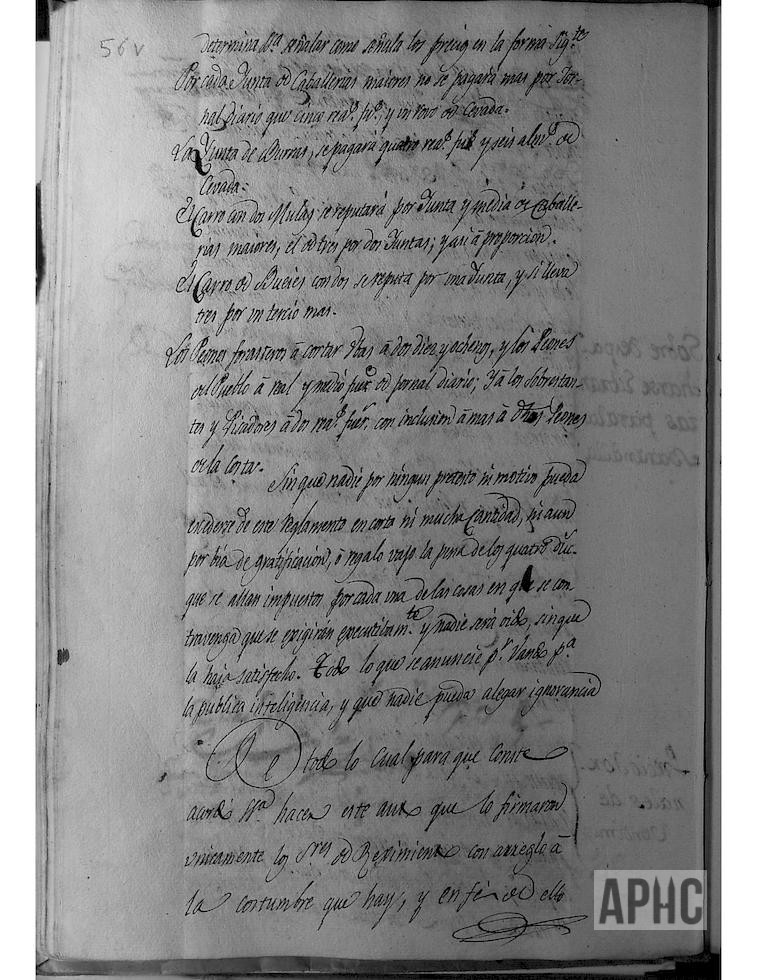 56v
determina Sª señalar como señala los precios en la forma Sig.te
Por cada Junta de Caballerias maiores no se pagará mas por Jor-
nal diario que cinco rea.s fu.s, y un Rovo de Cevada.
La Junta de Burras, se pagará quatro rea.s fu.s y seis alm.s de
Cevada.
El Carro con dos Mulas se reputará por Junta y media de Caballe-
rias maiores, el de tres por dos Juntas, y asi á proporcion.
El Carro de Bueies con dos se reputa por una Junta, y si lleva
tres por un tercio mas.
Los Peones forasteros á cortar á dos diez y ochenos, y los Peones
del Pueblo á real y medio fuer. de jornal diario; Y á los Sobrestan-
tes y Picadores á dos rea.s fuer.s con inclusion á mas á dhos Peones
de la Corta.
Sin que nadie por ningun pretesto ni motivo pueda
excederse de este Reglamento en corta ni mucha Cantidad, ni aun
por via de gratificacion, ó regalo vajo la pena de los quatro duc.s
que se allan impuestos por cada una de las cosas en que se con
travenga que se exigirán executibam.te y nadie será oido, sin que
la haja satisfecho. Todo lo que se anuncie p.r Vando p.a
la publica inteligencia, y que nadie pueda alegar ignorancia
De todo lo Cual para que Conste
acordó Sª hacer este auto que lo firmaron
unicamente los S.res de Reximiento con arreglo á
la costumbre que hay, y en fe de ello
Sobre
APHC